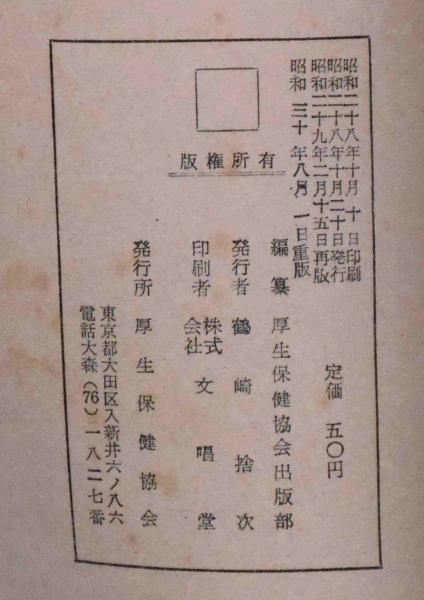 昭和二十八年十月　十　日印刷
昭和二十八年十月二十日発行
昭和二十九年二月十五日再版
昭和　三十　年八月　一日重版
版権所有
定価　五〇円
編纂　厚生保健協会出版部
発行者　鶴崎捨次
印刷者　株式会社　文唱堂
発行所　厚生保健協会
東京都大田区入新井六ノ八六
電話大森(76)一八二七番